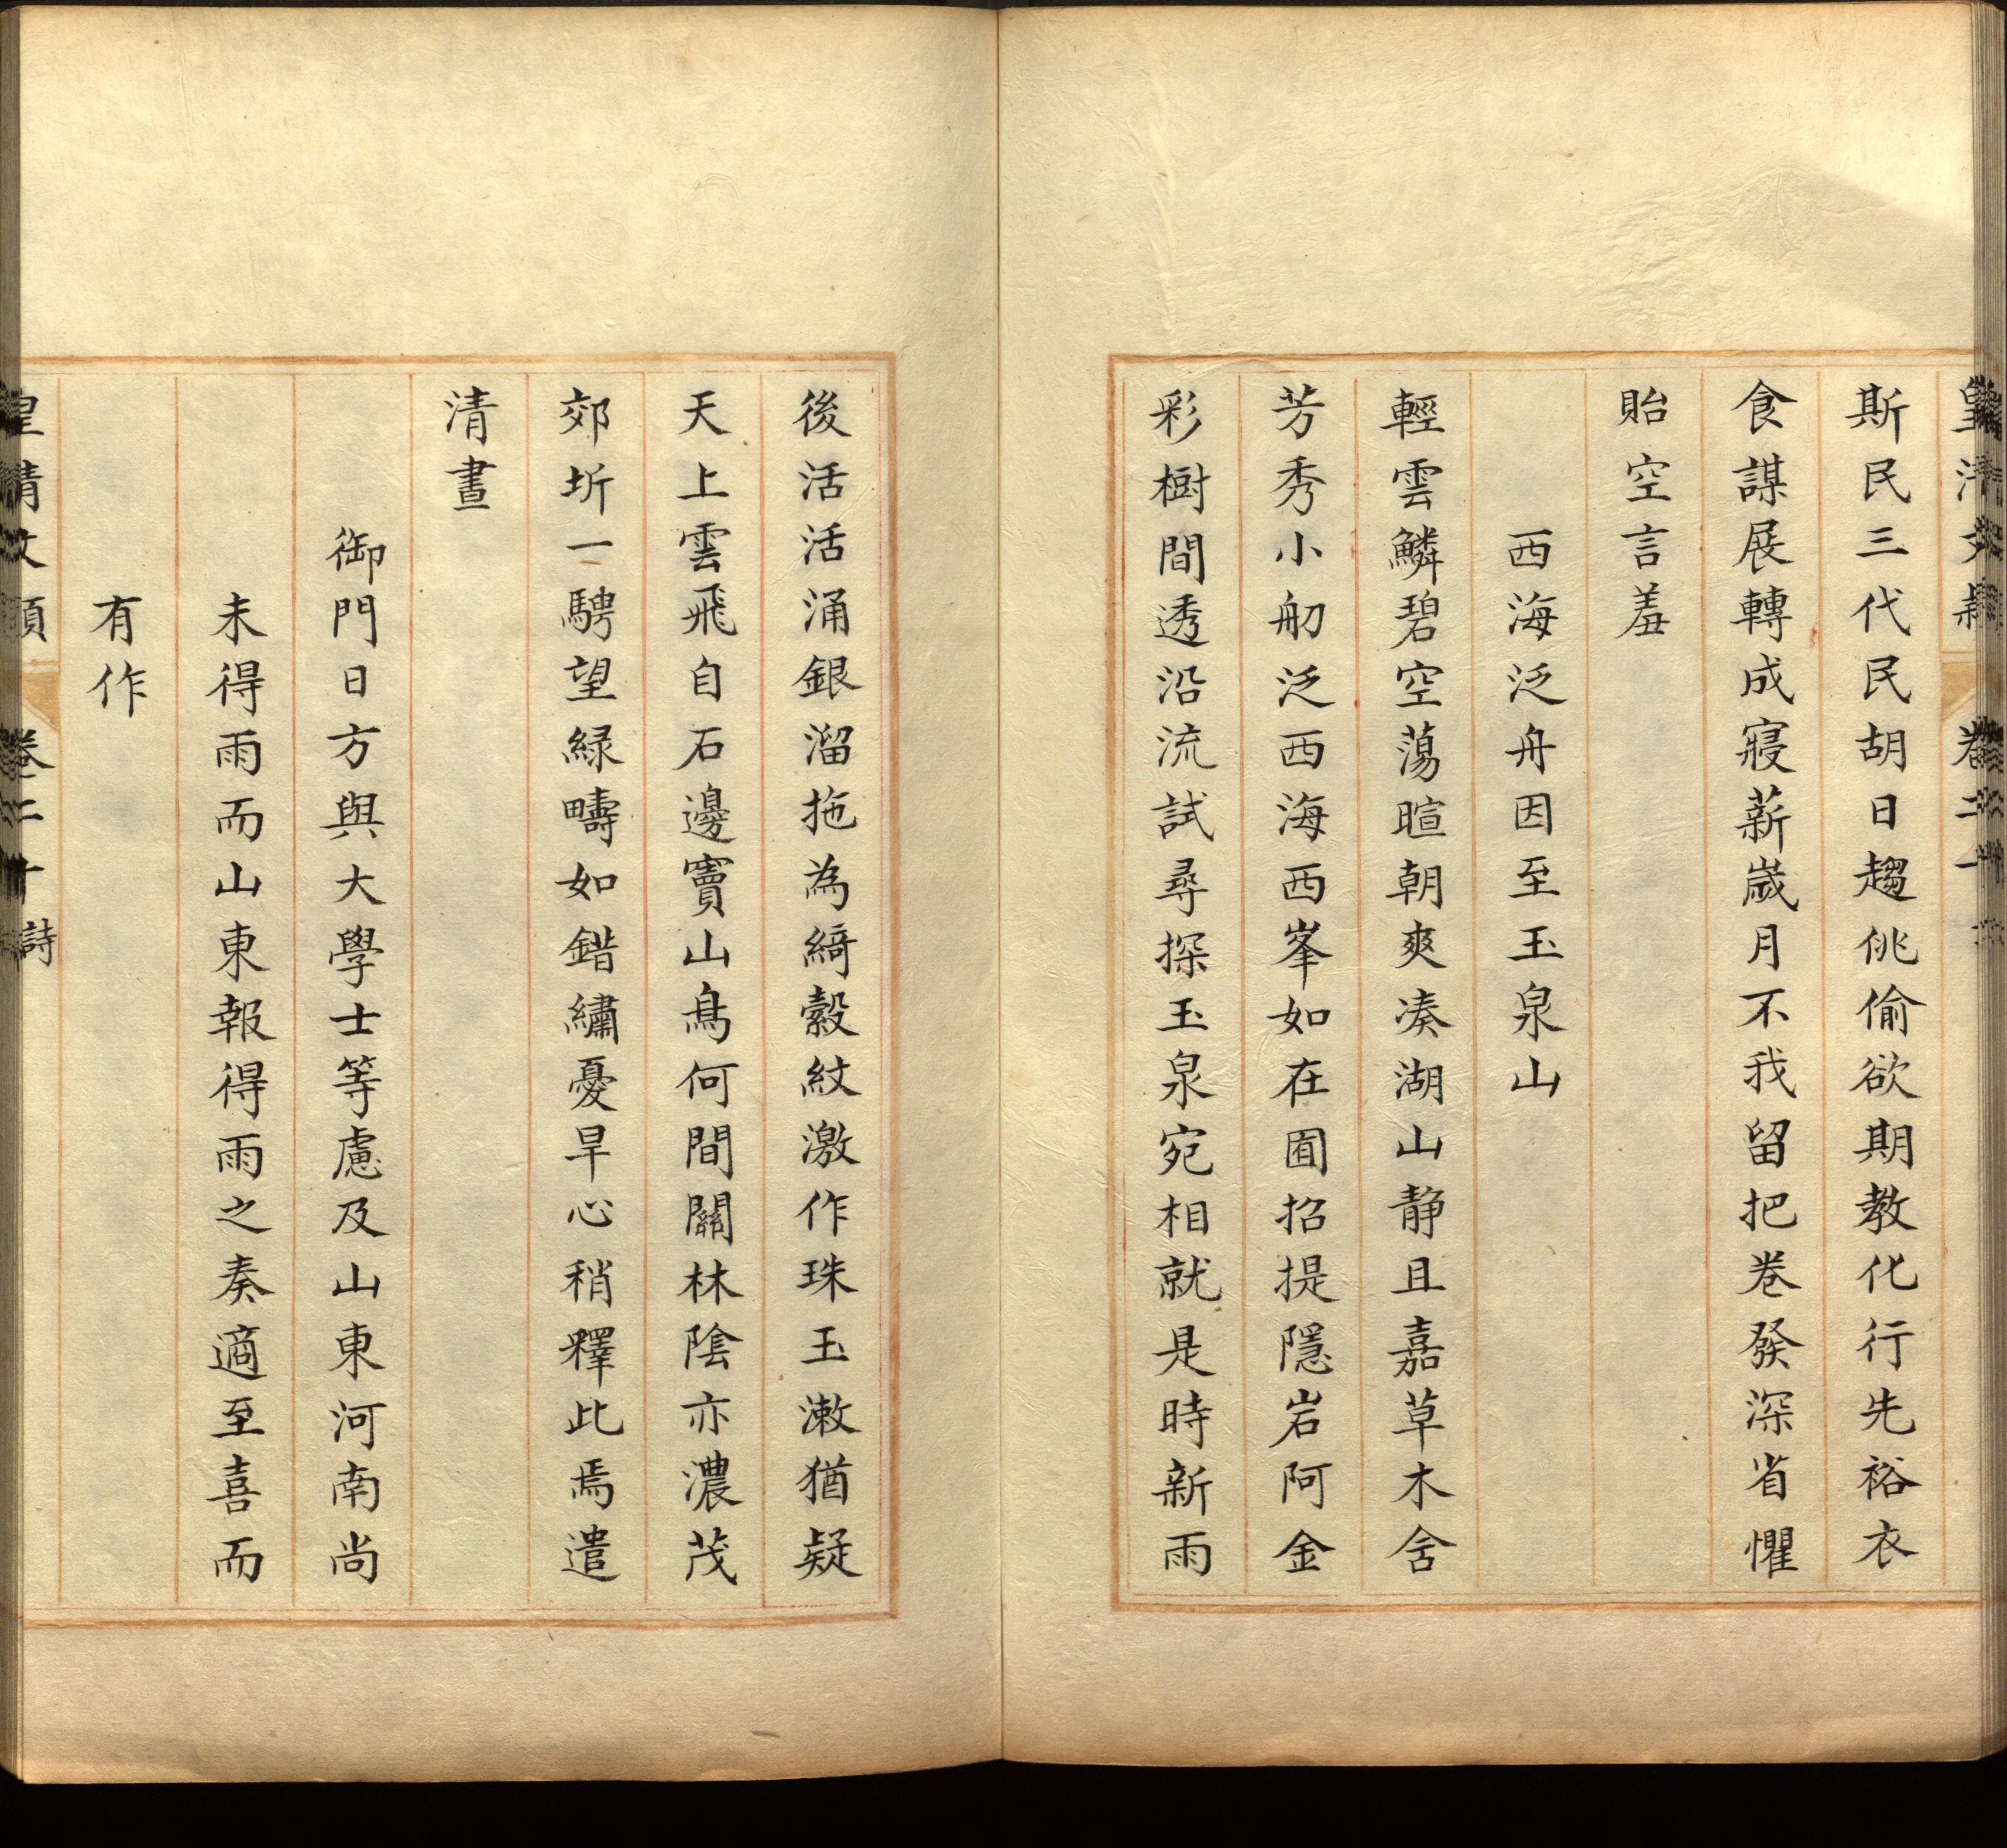 皇清文穎 卷二十
斯民三代民胡日趨佻偷欲期教化行先裕衣
食謀展轉成寢薪歲月不我留把卷發深省懼
貽空言羞
西海泛舟因至玉泉山
輕雲鱗碧空蕩暄朝爽凑湖山静且嘉草木含
芳秀小舠泛西海西峯如在囿招提隱岩阿金
彩樹間透沿流試尋探玉泉宛相就是時新雨
後活活涌銀溜拖為綺縠紋激作珠玉漱猶疑
天上雲飛自石邊竇山鳥何間關林陰亦濃茂
郊圻一騁望緑疇如錯繡憂旱心稍釋此焉遣
清晝
御門日方與大學士等慮及山東河南尚
未得雨而山東報得雨之奏適至喜而
有作
皇清文穎 卷二十詩